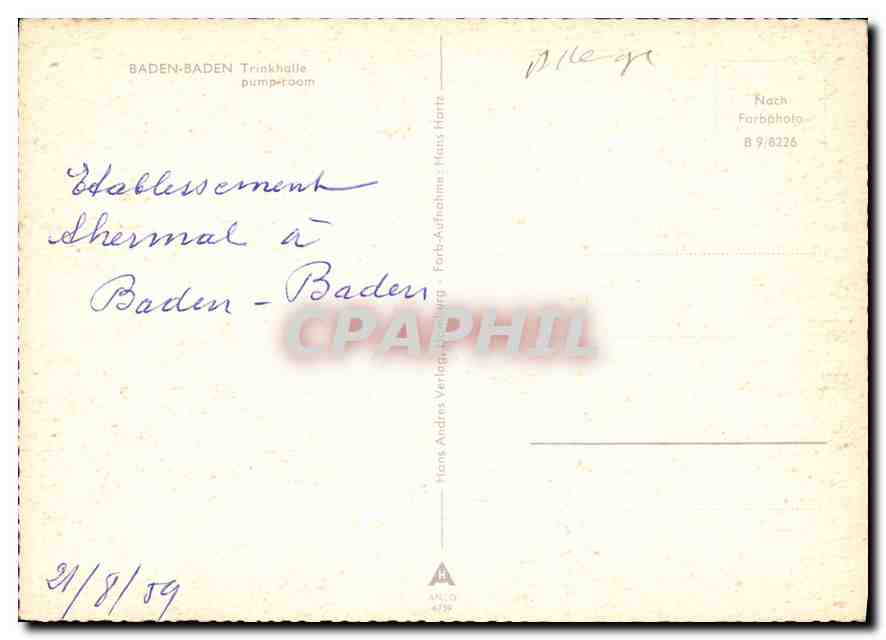 BADEN-BADEN Trinkhalle
pump-room
Etablissement
thermal à
Baden - Baden
21/8/59
Hans Andres Verlag, Hamburg - Farb-Aufnahme: Hans Hartz
Nach
Farbphoto
B 9/8226
CPAPHIL
H
4/59